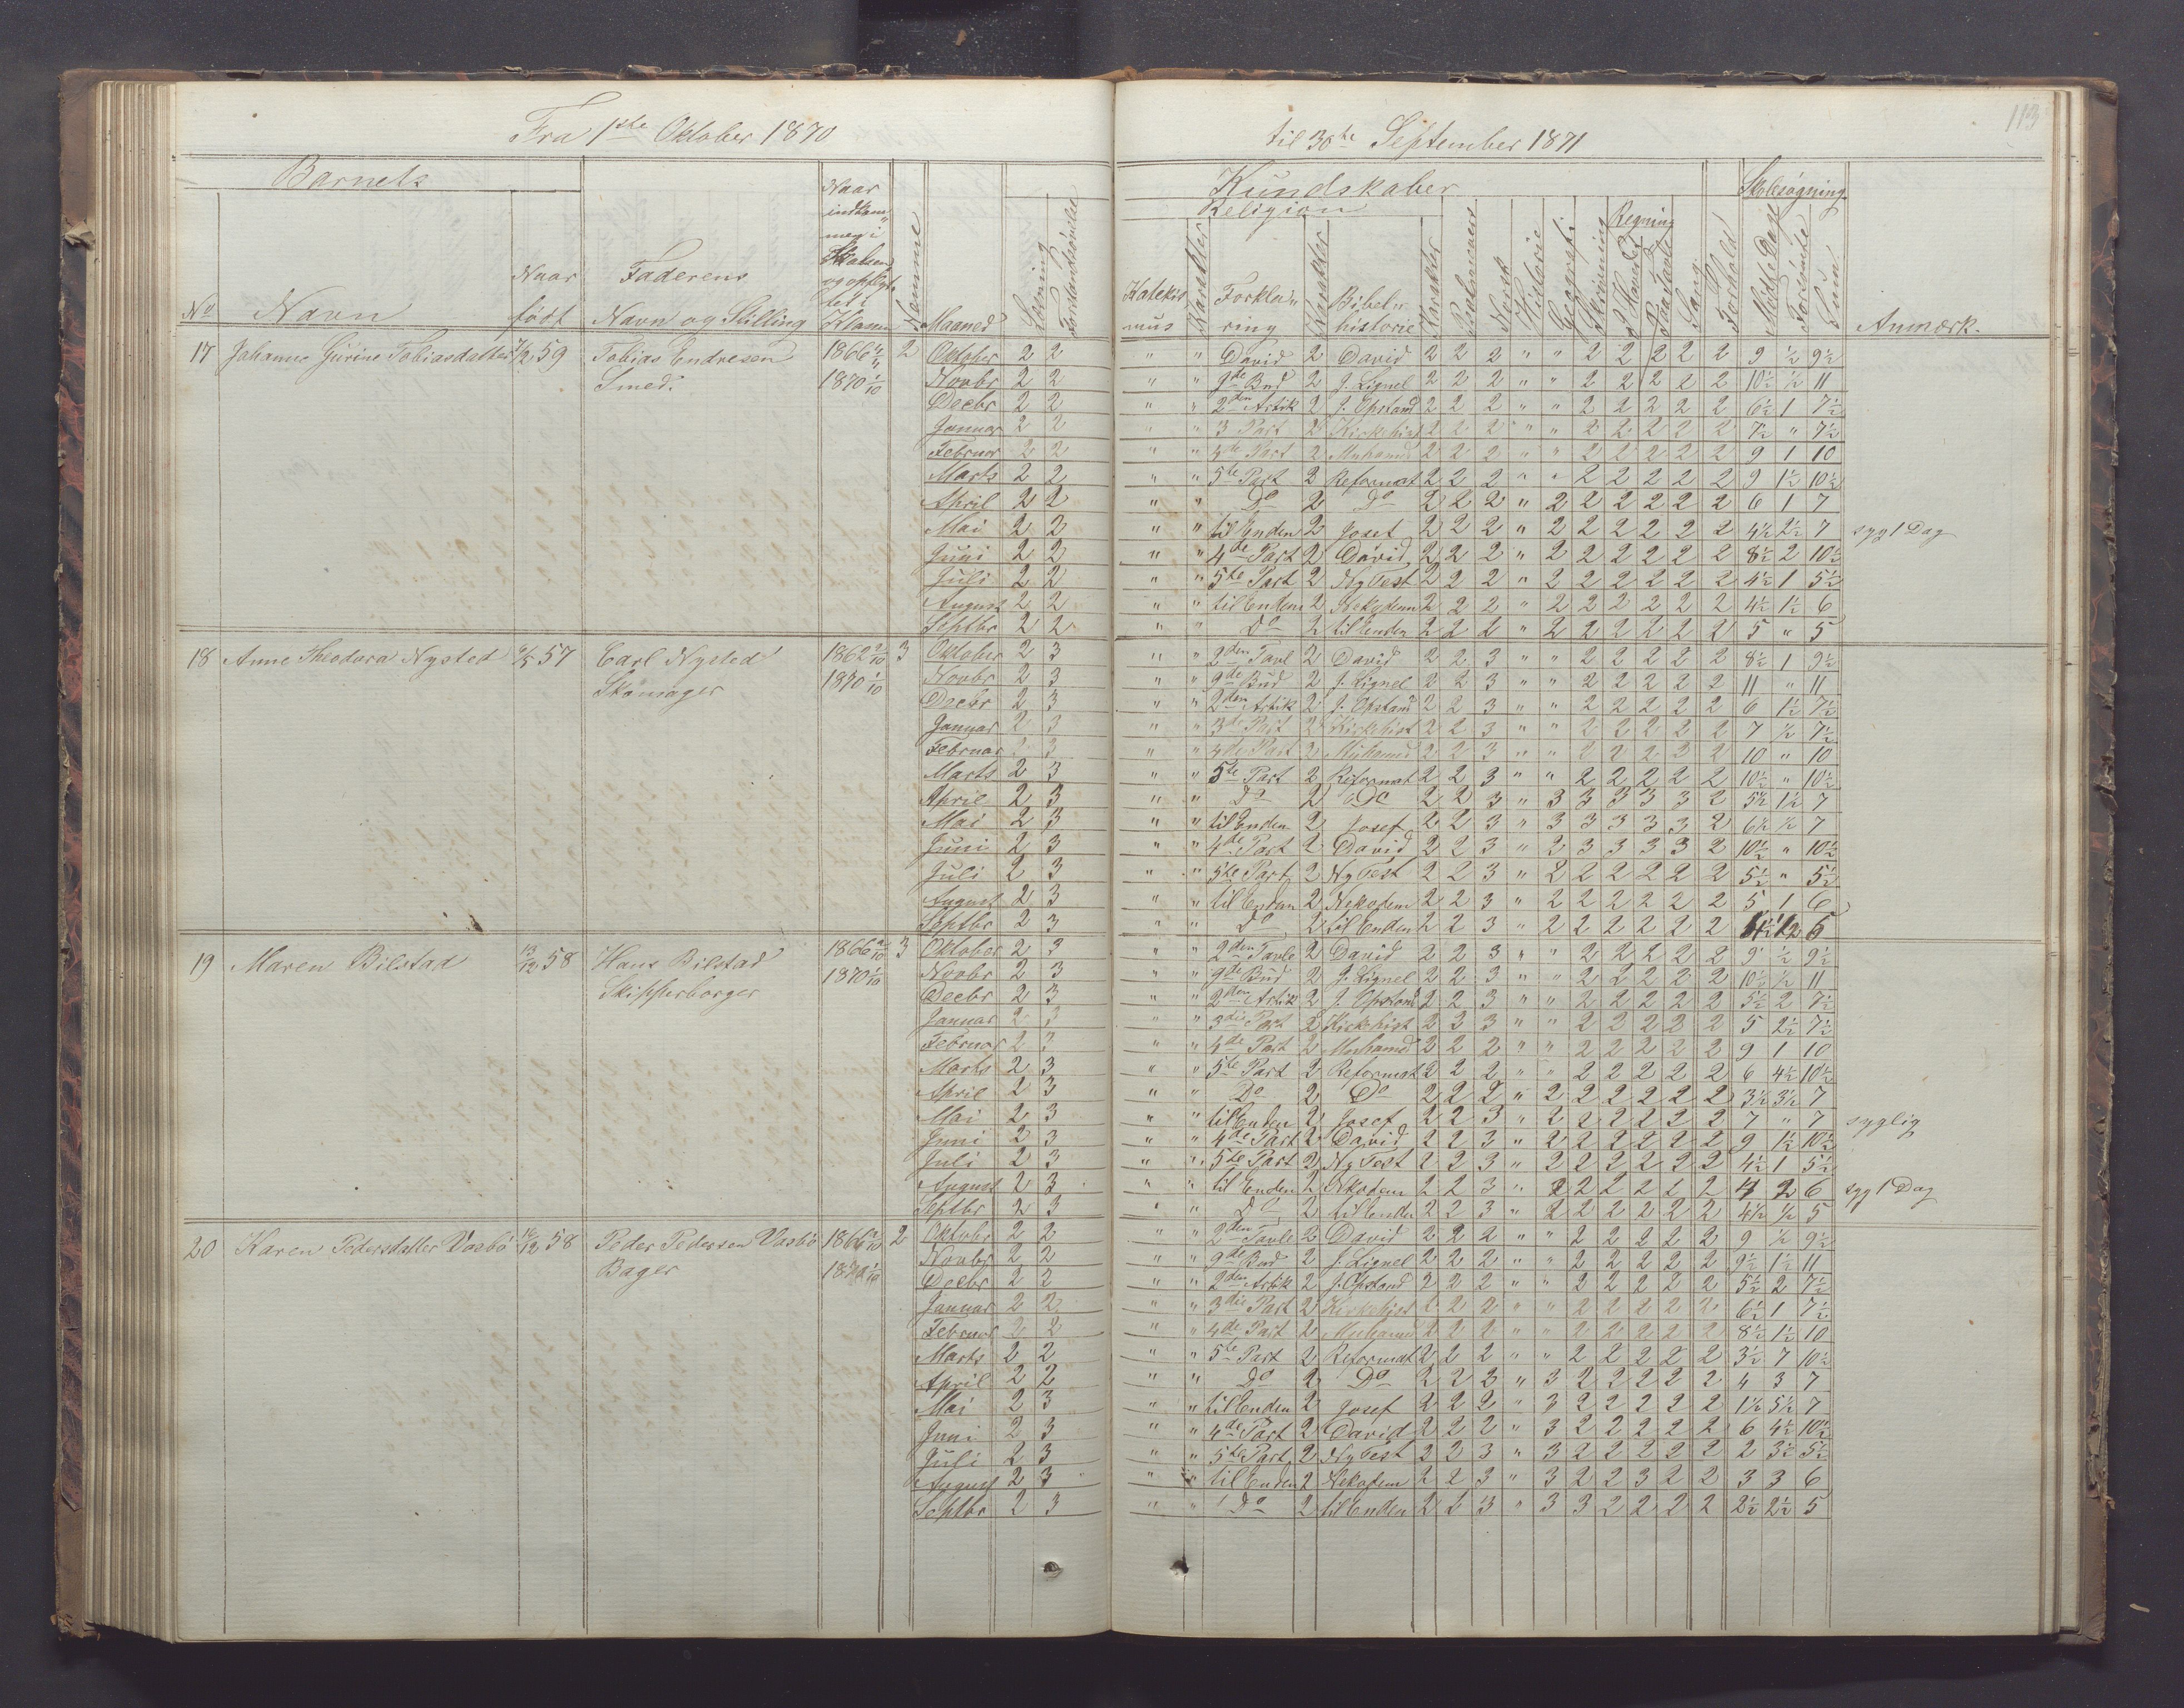 113
Fra 1ste Oktober 1870 til 30te September 1871
Barnets
No
Navn
Naar født
Faderens Navn og Stilling
Naar indkommen i Skolen og opflyttet i Klassen
Nemme
Maaned
Læsning
Forstandsøvelse
Kundskaber
Religion
Katekismus
Karakter
Forklaring
Karakter
Bibelhistorie
Karakter
Psalmevers
Norsk
Historie
Geografi
Skrivning
Regning
I Hovedet
Paa Tavle
Sang
Forhold
Skolesøgning
Mødte Dage
Forsømte
Sum
Anmærk.
17 Johanne Gurine Tobiasdatter 59 Tobias Endresen 1866 2
Smed. 1870 1/10
Oktober 2 2 " " David 2 David 2 2 2 " " 2 2 2 2 2 9 1/2 9 1/2
Novbr 2 2 " " 9de Bud 2 J. Lignel 2 2 2 " " 2 2 2 2 2 10 1/2 1/2 11
Decbr 2 2 " " 2den Artik 2 J. Opstand 2 2 2 " " 2 2 2 2 2 6 1/2 1 7 1/2
Januar 2 2 " " 3 Part 2 Kirkehist 2 2 2 " " 2 2 2 2 2 7 1/2 " 7 1/2
Februar 2 2 " " 4de Part 2 Muhamed 2 2 2 " " 2 2 2 2 2 9 1 10
Marts 2 2 " " 5te Part 2 Reformat 2 2 2 " " 2 2 2 2 2 9 1 1/2 10 1/2
April 2 2 " " Do 2 Do 2 2 2 " 2 2 2 2 2 2 6 1 7
Mai 2 2 " " til Enden 2 Josef 2 2 2 " 2 2 2 2 2 2 4 1/2 2 1/2 7 syg 1 Dag
Juni 2 2 " " 4de Part 2 David 2 2 2 " 2 2 2 2 2 2 8 1/2 2 10 1/2
Juli 2 2 " " 5te Part 2 Ny Test 2 2 2 " 2 2 2 2 2 2 4 1/2 1 5 1/2
August 2 2 " " til Enden 2 Nekodem 2 2 2 " 2 2 2 2 2 2 4 1/2 1 1/2 6
Septbr 2 2 " " Do 2 til Enden 2 2 2 " 2 2 2 2 2 2 5 " 5
18 Anne Theodora Nysted 57 Carl Nysted 1862 3
Skomager 1870 1/10
Oktober 2 3 " " 2den Tavl 2 David 2 2 3 " " 2 2 2 2 2 8 1/2 1 9 1/2
Novbr 2 3 " " 9de Bud 2 J. Lignel 2 2 3 " " 2 2 2 2 2 11 " 11
Decbr 2 3 " " 2den Artik 2 J. Opstand 2 2 3 " " 2 2 2 2 2 6 1 1/2 7 1/2
Januar 2 3 " " 3de Part 2 Kirkehist 2 2 3 " " 2 2 2 2 2 7 1/2 7 1/2
Februar 2 3 " " 4de Part 2 Muhamed 2 2 3 " " 2 2 2 2 2 10 " 10
Marts 2 3 " " 5te Part 2 Reformat 2 2 3 " " 2 2 2 2 2 10 1/2 " 10 1/2
April 2 3 " " Do 2 Do 2 2 3 " 3 3 3 3 3 2 5 1/2 1 1/2 7
Mai 2 3 " " til Enden 2 Josef 2 2 3 " 3 3 3 3 3 2 6 1/2 1/2 7
Juni 2 3 " " 4de Part 2 David 2 2 3 " 2 3 3 3 3 2 10 1/2 " 10 1/2
Juli 2 3 " " 5te Part 2 Ny Test 2 2 3 " 2 2 2 2 2 2 5 1/2 " 5 1/2
August 2 3 " " til Enden 2 Nekodem 2 2 3 " 2 2 2 2 2 2 5 1 6
Septbr 2 3 " " Do 2 til Enden 2 2 3 " 2 2 2 2 2 2 4 1/2 1/2 5
19 Maren Bilstad 13/12 58 Hans Bilstad 1866 3
Skipperborger 1870 1/10
Oktober 2 3 " " 2den Tavle 2 David 2 2 3 " " 2 2 2 2 2 9 1/2 9 1/2
Novbr 2 3 " " 9de Bud 2 J. Lignel 2 2 3 " " 2 2 2 2 2 10 1/2 1/2 11
Decbr 2 3 " " 2den Artik 2 J. Opstand 2 2 3 " " 2 2 2 2 2 5 1/2 2 7 1/2
Januar 2 3 " " 3die Part 2 Kirkehist 2 2 3 " " 2 2 2 2 2 5 2 1/2 7 1/2
Februar 2 3 " " 4de Part 2 Muhamed 2 2 2 " " 2 2 2 2 2 9 1 10
Marts 2 3 " " 5te Part 2 Reformat 2 2 2 " " 2 2 2 2 2 6 4 1/2 10 1/2
April 2 3 " " Do 2 Do 2 2 2 " 2 2 2 2 2 2 3 1/2 3 1/2 7
Mai 2 3 " " til Enden 2 Josef 2 2 3 " 2 2 2 2 2 2 7 " 7 syglig
Juni 2 3 " " 4de Part 2 David 2 2 3 " 2 2 2 2 2 2 9 1 1/2 10 1/2
Juli 2 3 " " 5te Part 2 Ny Test 2 2 3 " 2 2 2 2 2 2 4 1/2 1 5 1/2
August 2 3 " " til Enden 2 Nekodem 2 2 3 " 2 2 2 2 2 2 4 2 6 syg 1 Dag
Septbr 2 3 " " Do 2 til Enden 2 2 3 " 2 2 2 2 2 2 4 1/2 1/2 5
20 Karen Pedersdatter Vasbö 58 Peder Pedersen Vasbö 1866 2
Bager
Oktobr 2 2 " " 2den Tavle 2 David 2 2 2 " " 2 2 2 2 2 9 1/2 9 1/2
Novbr 2 2 " " 9de Bud 2 J. Lignel 2 2 2 " " 2 2 2 2 2 9 1/2 1 1/2 11
Decbr 2 2 " " 2den Artik 2 J. Opstand 2 2 2 " " 2 2 2 2 2 5 1/2 2 7 1/2
Januar 2 2 " " 3die Part 2 Kirkehist 2 2 2 " " 2 2 2 2 2 6 1/2 1 7 1/2
Februar 2 2 " " 4de Part 2 Muhamed 2 2 2 " " 2 2 2 2 2 8 1/2 1 1/2 10
Marts 2 2 " " 5te Part 2 Reformat 2 2 2 " " 2 2 2 2 2 3 1/2 7 10 1/2
April 2 2 " " Do 2 Do 2 2 2 " 3 2 2 2 2 2 4 3 7
Mai 2 3 " " til Enden 2 Josef 2 2 2 " 3 2 2 2 2 2 1 1/2 5 1/2 7
Juni 2 3 " " 4de Part 2 David 2 2 2 " 3 2 2 2 2 2 6 4 1/2 10 1/2
Juli 2 3 " " 5te Part 2 Ny Test 2 2 3 " 3 2 2 2 2 2 2 3 1/2 5 1/2
August 2 3 " " til Enden 2 Nekodem 2 2 3 " 3 2 2 3 2 2 3 3 6
Septbr 2 3 " " Do 2 til Enden 2 2 3 " 3 3 2 2 2 2 2 1/2 2 1/2 5